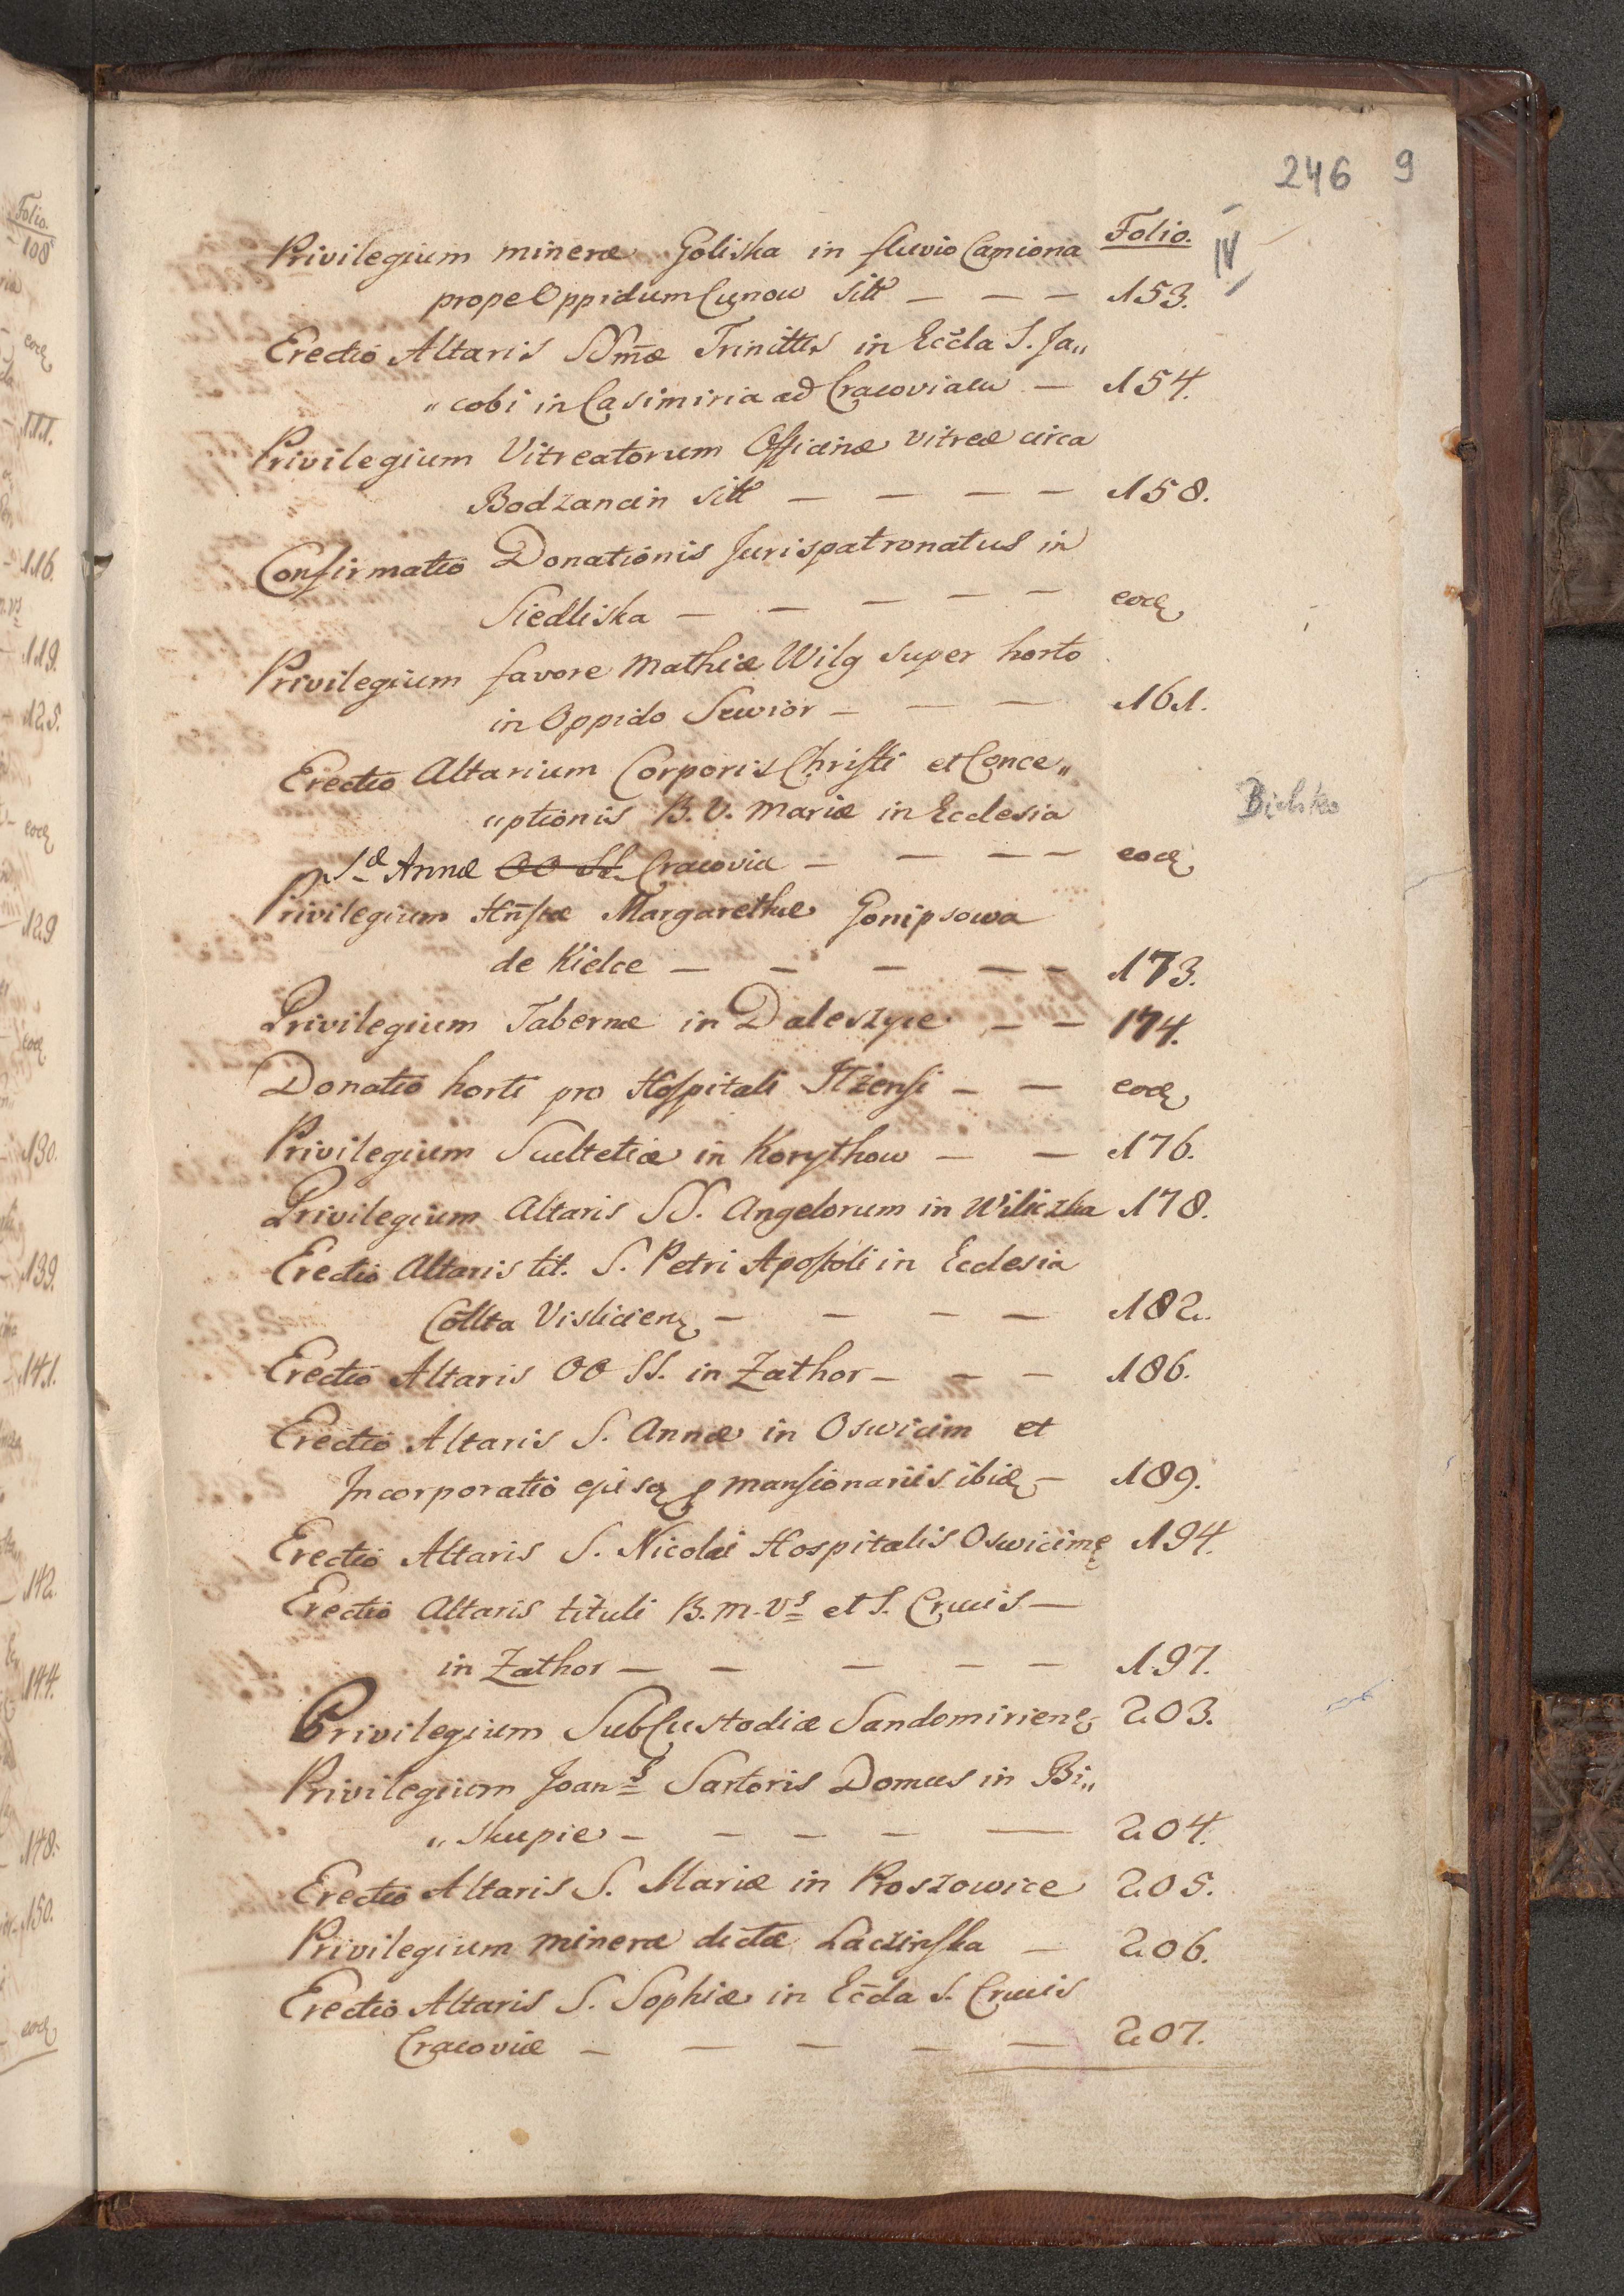 246 9
Folio.
IV
Privilegium mineræ Goliska in fluvio Camiona
prope Oppidum Cunow sitt — — — 153.
Erectio Altaris SSm̄æ Trinittis in Eccla S. Ja„
„cobi in Casimiria ad Cracoviam — 154.
Privilegium Vitreatorum Officinæ vitreæ circa
Bodzancin sitt — — — — 158.
Confirmatio Donationis Jurispatronatus in
Siedliska — — — — — eodę
Privilegium favore Mathiæ Wilg super horto
in Oppido Sewior — — — 161.
Erectio Altarium Corporis Christi et Conce„
„ptionis B. V. Mariæ in Ecclesia
Sæ Annæ OO SS. Cracoviæ — — — — eodę
Bielsko
Privilegium Hn̄stæ Margarethæ Gonipsowa
de Kielce — — — — — 173.
Privilegium Tabernæ in Daleszyce — — 174.
Donatio horti pro Hospitali Ilzensi — — eodę
Privilegium Scultetiæ in Korythow — — 176.
Privilegium Altaris SS. Angelorum in Wiliczka 178.
Erectio Altaris tit. S. Petri Apostoli in Ecclesia
Collta Vislicienę — — — — 182.
Erectio Altaris OO SS. in Zathor — — — 186.
Erectio Altaris S. Annæ in Oswicim et
Incorporatio ejusdę p mansionariis ibidę — 189.
Erectio Altaris S. Nicolai Hospitalis Oswicimę 194.
Erectio Altaris tituli B. M. Vs et S. Crucis —
in Zathor — — — — — 197.
Privilegium SubCustodiæ Sandomirienę 203.
Privilegium Joans Sartoris Domus in Bi„
„skupie — — — — — 204.
Erectio Altaris S. Mariæ in Proszowice 205.
Privilegium mineræ dictæ Laczinska — 206.
Erectio Altaris S. Sophiæ in Eccla S. Crucis
Cracoviæ — — — — — 207.